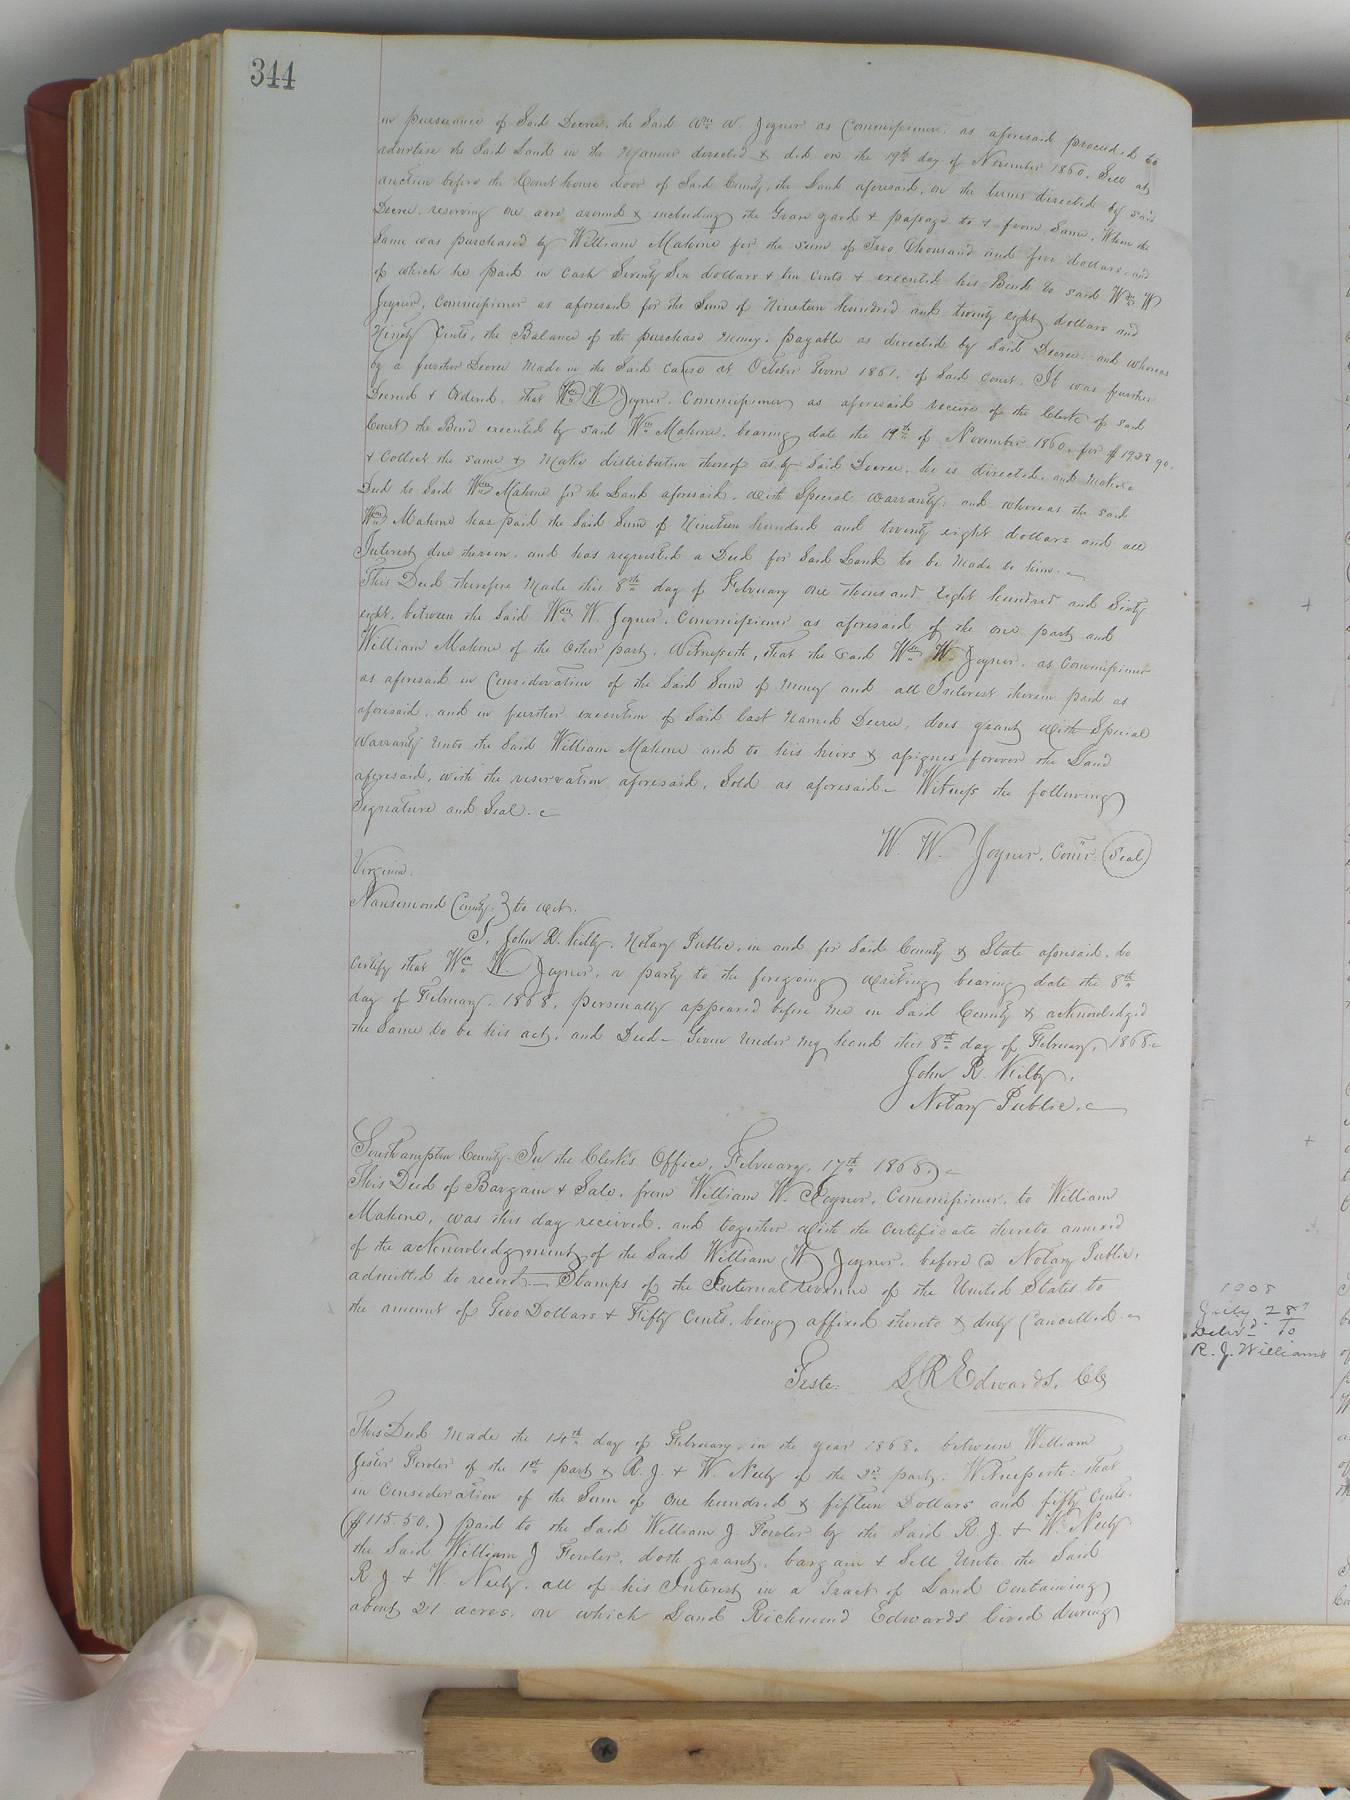 344
in pursuance of Said Decree, the Said Wm W. Joyner as Commissioner, as aforesaid proceeded to
advertise the Said Land in the Manner directed & did on the 19th day of November 1860, Sell at
auction before the Court house door of Said County, the Land aforesaid, on the terms directed by said
Decree, reserving one acre around & including the Grave yard & passage to & from Same, When the
Same was purchased by William Mahone for the sum of Two Thousand and five dollars, and
of which he paid in Cash Seventy Six dollars & ten Cents & executed his Bond to said Wm W
Joyner, Commissioner as aforesaid for the Sum of Nineteen hundred and twenty eight dollars and
Ninety Cents, the Balance of the purchase Money, payable as directed by Said Decree, and whereas
by a further Decree Made in the Said Cause at October Term 1861, of Said Court, It was further
Decreed & Ordered, that Wm W Joyner, Commissioner as aforesaid receive of the Clerk of said
Court the Bond executed by said Wm Mahone, bearing date the 19th of November 1860, for $1928.90.
& Collect the same & Make distribution thereof as by Said Decree, he is directed, and Make a
Deed to Said Wm Mahone for the Land aforesaid, with Special Warranty, and whereas the said
Wm Mahone has paid the Said Sum of Nineteen hundred and twenty eight dollars and all
Interest due thereon, and has requested a Deed for Said Land to be Made to him.
This Deed therefore Made this 8th day of February One thousand Eight hundred and Sixty
eight, between the Said Wm W. Joyner, Commissioner as aforesaid of the one part and
William Mahone of the Other part, Witnesseth, that the said Wm W. Joyner, as Commissioner
as aforesaid in Consideration of the Said Sum of Money and all Interest thereon paid as
aforesaid, and in further execution of Said last Named Decree, does grant with Special
Warranty Unto the Said William Mahone and to his heirs & assigns forever the Land
aforesaid, with the reservation aforesaid, Sold as aforesaid - Witness the following
Signature and Seal.
W. W. Joyner, Comr (Seal)
Virginia.
Nansemond County, } to wit.
I, John R. Kilby, Notary Public, in and for Said County & State aforesaid, do
Certify that Wm W Joyner, a party to the foregoing writing bearing date the 8th
day of February, 1868, personally appeared before me in Said County & acknowledged
the Same to be his act, and Deed - Given Under my hand this 8th day of February, 1868.
John R. Kilby,
Notary Public.
Southampton County - In the Clerk's Office, February, 17th 1868,
This Deed of Bargain & Sale, from William W. Joyner, Commissioner, to William
Mahone, was this day received, and together with the Certificate thereto annexed
of the acknowledgment of the Said William W Joyner, before a Notary Public,
admitted to record - Stamps of the Internal revenue of the United States to
the amount of Two Dollars & Fifty Cents, being affixed thereto & duly Cancelled.
Teste. L R Edwards, CC
This Deed Made the 14th day of February, in the year 1868, between William
Jester Fowler of the 1st part & R. J. & W. Neely of the 2d part: Witnesseth: that
in Consideration of the Sum of One hundred & fifteen Dollars and fifty Cents,
($115.50,) paid to the Said William J. Fowler by the Said R. J. & W. Neely
the Said William J Fowler, doth grant, bargain & Sell Unto the Said
R. J. & W. Neely, all of his Interest in a Tract of Land Containing
about 21 acres, on which Land Richmond Edwards lived during
1908
July 28
Deliv'd to
R. J. Williams